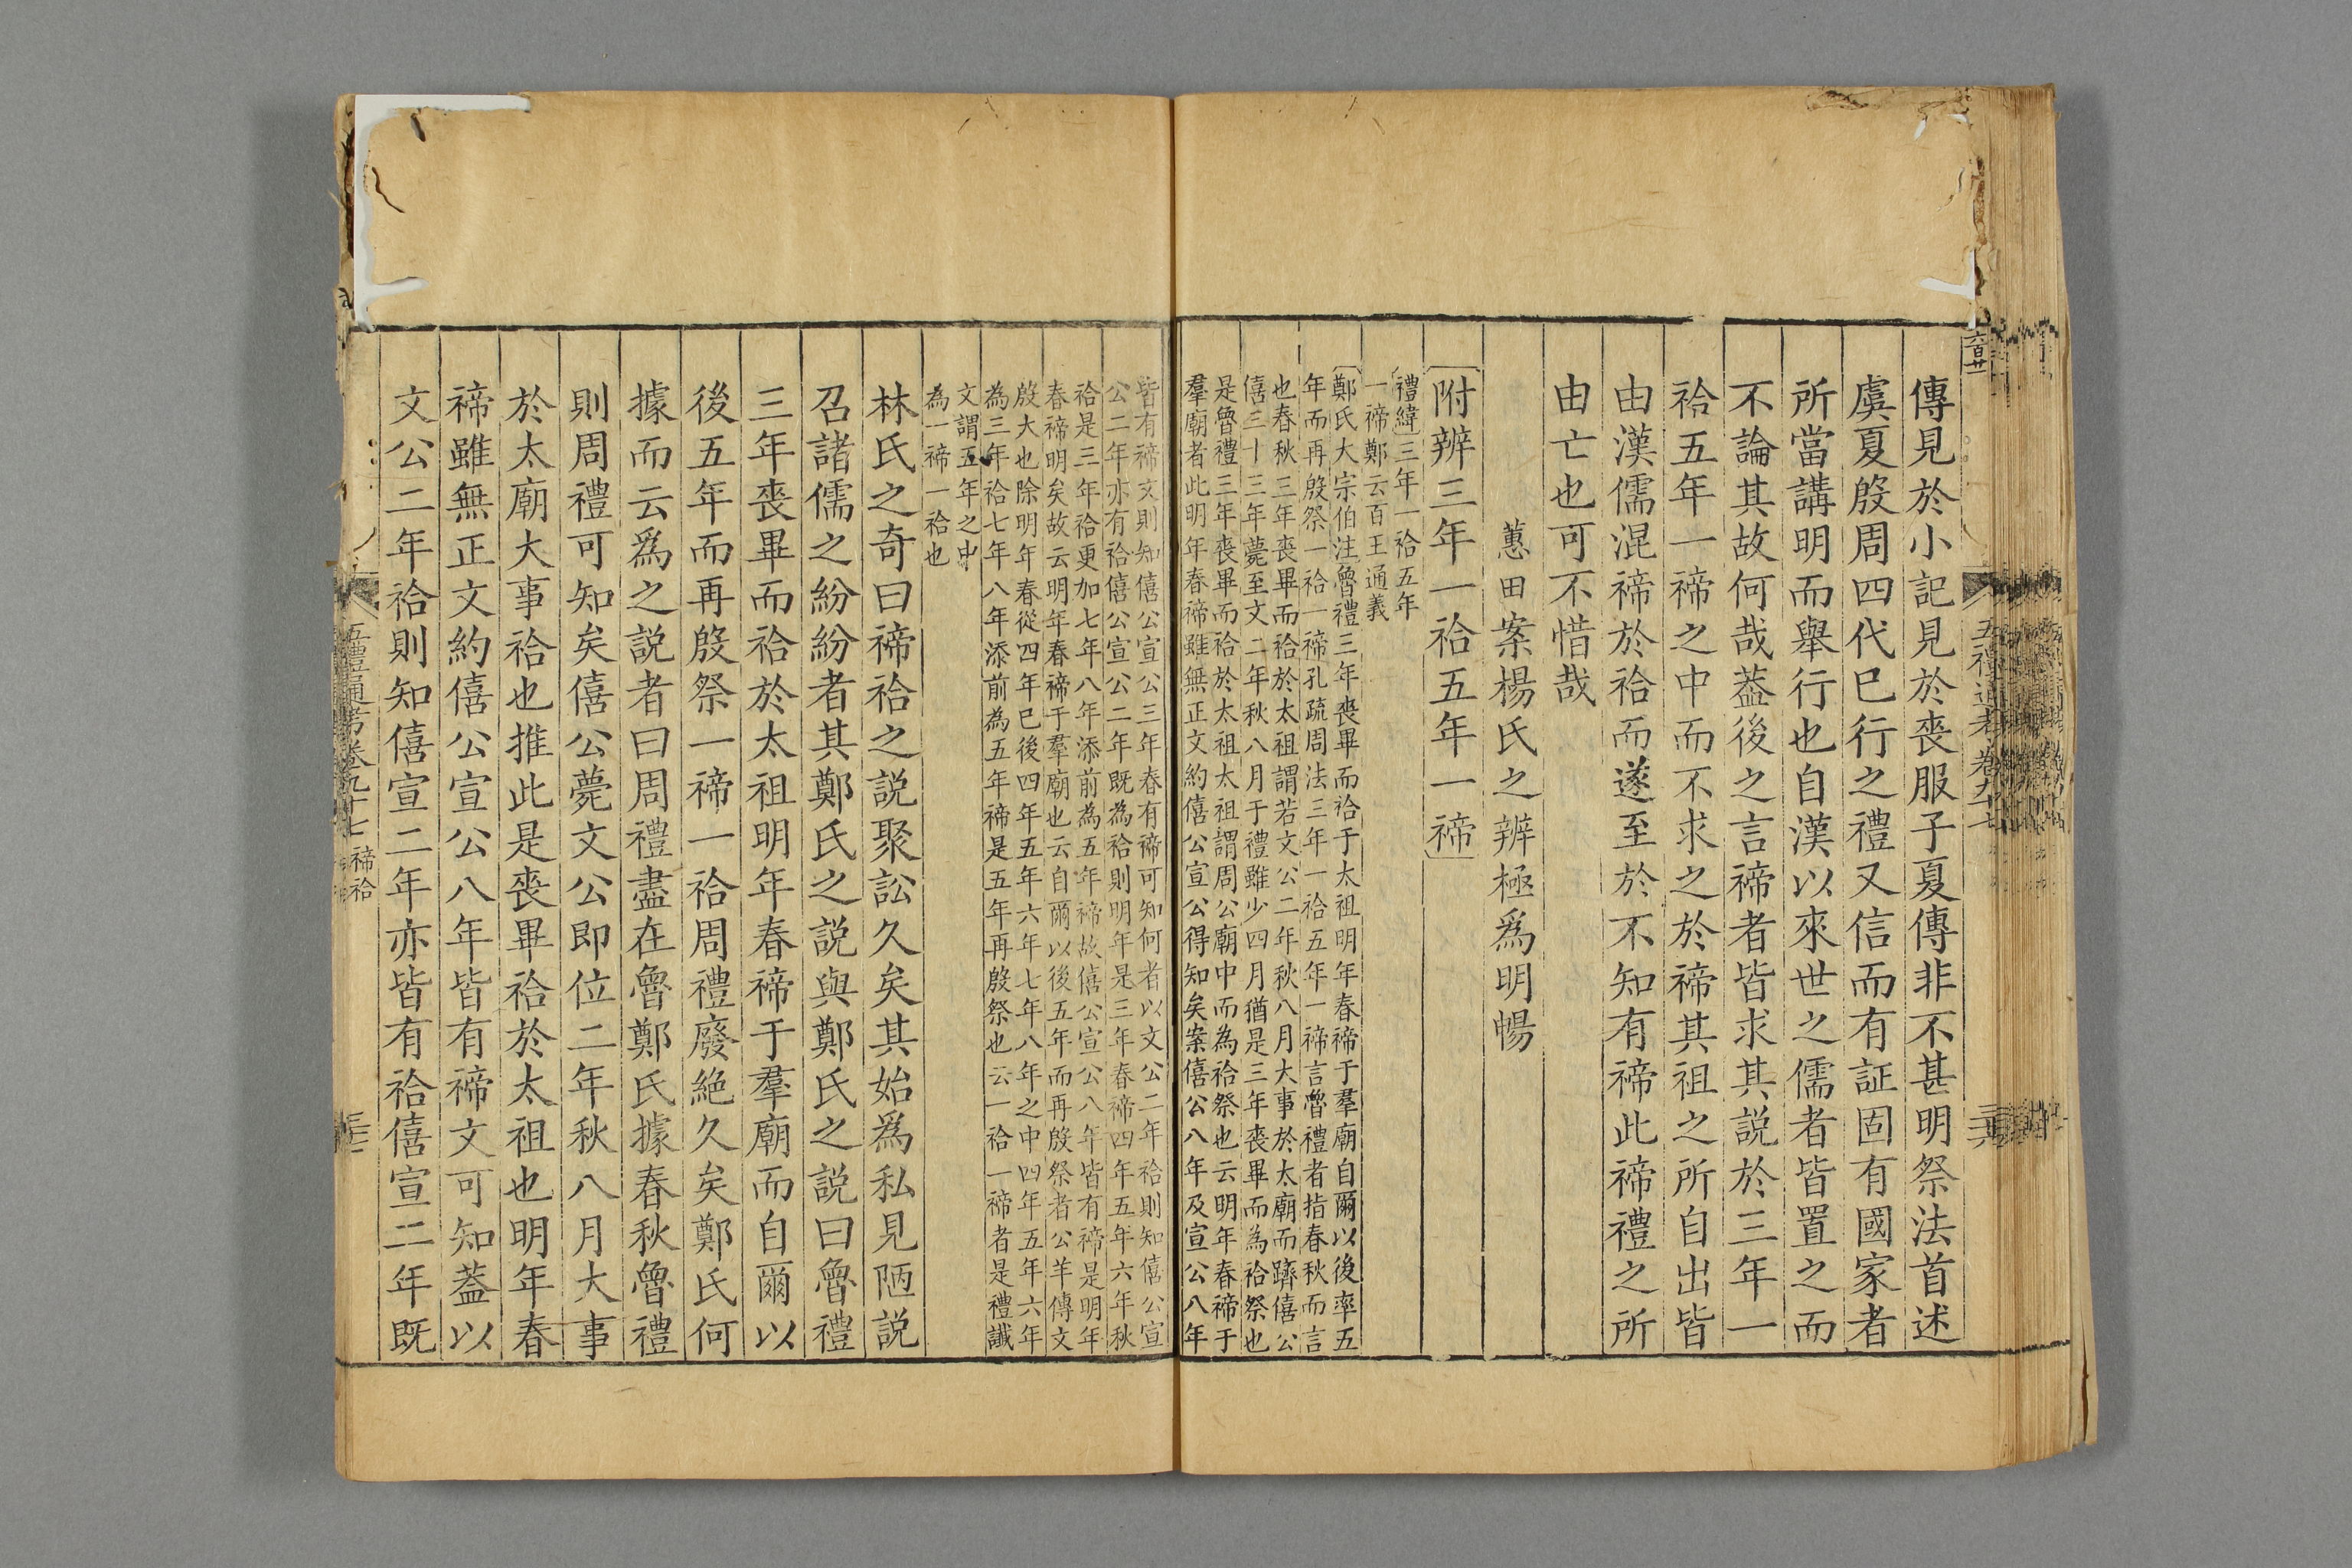 六百廿
五禮通考卷九十七
傳見於小記見於喪服子夏傳非不甚明祭法首述
虞夏殷周四代已行之禮又信而有証固有國家者
所當講明而舉行也自漢以來世之儒者皆置之而
不論其故何哉葢後之言禘者皆求其説於三年一
祫五年一禘之中而不求之於禘其祖之所自出皆
由漢儒混禘於祫而遂至於不知有禘此禘禮之所
由亡也可不惜哉
蕙田案楊氏之辨極爲明暢
附辨三年一祫五年一禘
禮緯三年一祫五年
一禘鄭云百王通義
鄭氏大宗伯注魯禮三年喪畢而祫于太祖明年春禘于羣廟自爾以後率五
年而再殷祭一祫一禘孔疏周法三年一祫五年一禘言魯禮者指春秋而言
也春秋三年喪畢而祫於太祖謂若文公二年秋八月大事於太廟而躋僖公
僖三十三年薨至文二年秋八月于禮雖少四月猶是三年喪畢而為祫祭也
是魯禮三年喪畢而祫於太祖太祖謂周公廟中而為祫祭也云明年春禘于
羣廟者此明年春禘雖無正文約僖公宣公得知矣案僖公八年及宣公八年
皆有禘文則知僖公宣公三年春有禘可知何者以文公二年祫則知僖公宣
公二年亦有祫僖公宣公二年既為祫則明年是三年春禘四年五年六年秋
祫是三年祫更加七年八年添前為五年禘故僖公宣公八年皆有禘是明年
春禘明矣故云明年春禘于羣廟也云自爾以後五年而再殷祭者公羊傳文
殷大也除明年春從四年已後四年五年六年七年八年之中四年五年六年
為三年祫七年八年添前為五年禘是五年再殷祭也云一祫一禘者是禮讖
文謂五年之中
為一禘一祫也
林氏之奇曰禘祫之説聚訟久矣其始爲私見陋説
召諸儒之紛紛者其鄭氏之説與鄭氏之説曰魯禮
三年喪畢而祫於太祖明年春禘于羣廟而自爾以
後五年而再殷祭一禘一祫周禮廢絶久矣鄭氏何
據而云爲之説者曰周禮盡在魯鄭氏據春秋魯禮
則周禮可知矣僖公薨文公即位二年秋八月大事
於太廟大事祫也推此是喪畢祫於太祖也明年春
禘雖無正文約僖公宣公八年皆有禘文可知葢以
文公二年祫則知僖宣二年亦皆有祫僖宣二年既
五禮通考卷九十七 禘祫